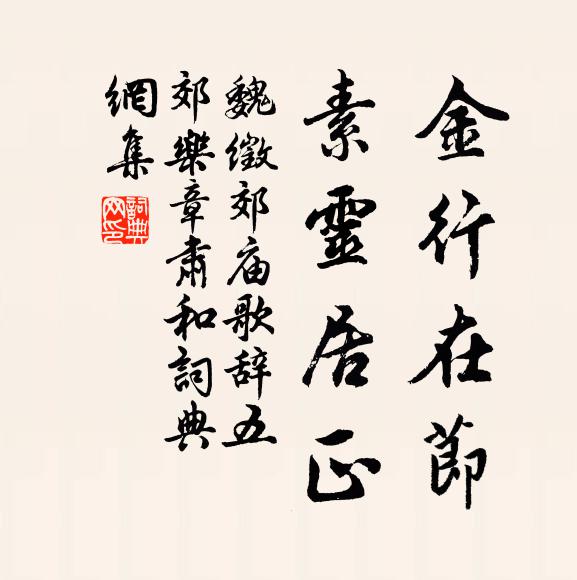 金行在節
素靈居正
魏徵郊庙歌辞五
郊樂章肅和詞典
網集
詞典网印